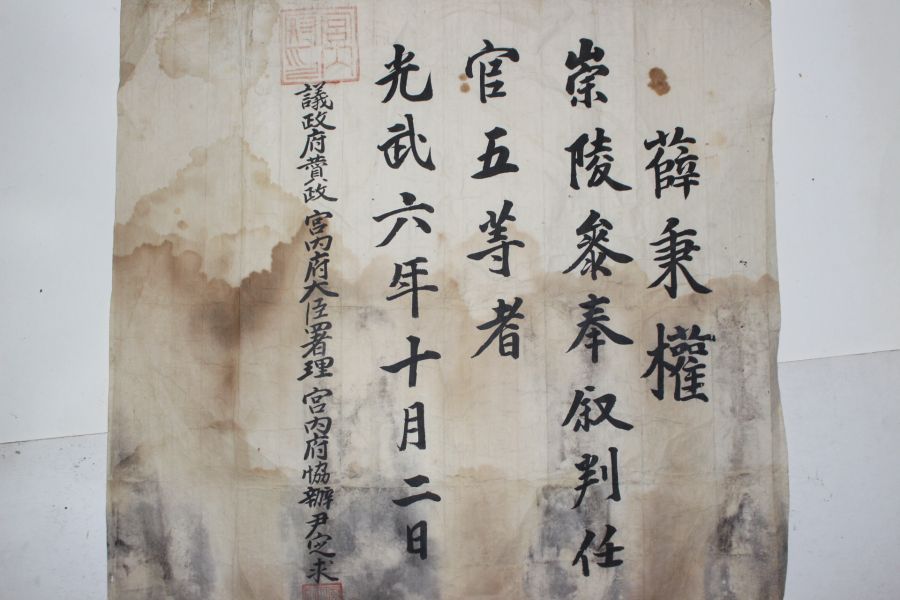 薛秉權
崇陵參奉叙判任
官五等者
光武六年十月二日
議政府贊政宮內府大臣署理宮內府協辦尹定求
宮內府印